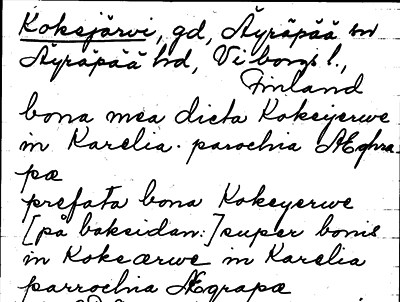 Koksjärvi, gd, Äyräpää sn
Äyräpää hd, Viborgs l.,
Finland
bona mea dicta Kokeijerwe
in Karelia. parochia Æghra
pæ
prefata bona Kokeyerwe
[på baksidan:] super bonis
in Kokeærwe in Karelia
parrochia Ægrapæ